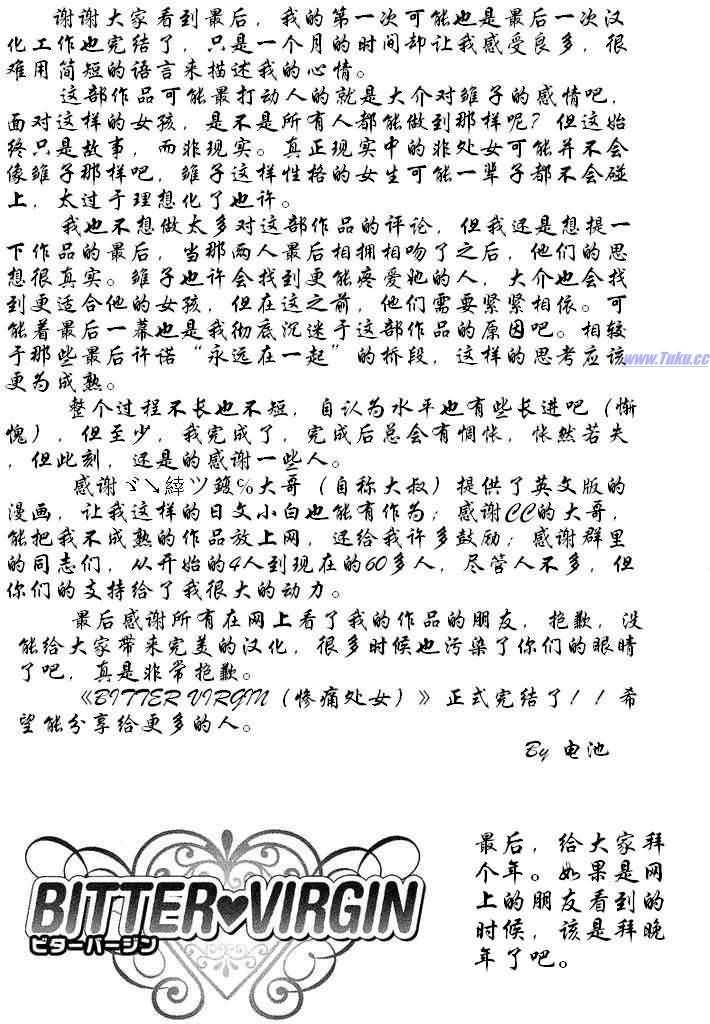 谢谢大家看到最后，我的第一次可能也是最后一次汉
化工作也完结了，只是一个月的时间却让我感受良多，很
难用简短的语言来描述我的心情。
这部作品可能最打动人的就是大介对雏子的感情吧，
面对这样的女孩，是不是所有人都能做到那样呢？但这始
终只是故事，而非现实。真正现实中的非处女可能并不会
像雏子那样吧，雏子这样性格的女生可能一辈子都不会碰
上，太过于理想化了也许。
我也不想做太多对这部作品的评论，但我还是想提一
下作品的最后，当那两人最后相拥相吻了之后，他们的思
想很真实。雏子也许会找到更能疼爱她的人，大介也会找
到更适合他的女孩，但在这之前，他们需要紧紧相依。可
能着最后一幕也是我彻底沉迷于这部作品的原因吧。相较
于那些最后许诺“永远在一起”的桥段，这样的思考应该
更为成熟。
www.Tuku.cc
整个过程不长也不短，自认为水平也有些长进吧（惭
愧），但至少，我完成了，完成后总会有惆怅，怅然若失
，但此刻，还是的感谢一些人。
感谢ヾ↘繂ツ鍑℅大哥（自称大叔）提供了英文版的
漫画，让我这样的日文小白也能有作为；感谢CC的大哥，
能把我不成熟的作品放上网，还给我许多鼓励；感谢群里
的同志们，从开始的4人到现在的60多人，尽管人不多，但
你们的支持给了我很大的动力。
最后感谢所有在网上看了我的作品的朋友，抱歉，没
能给大家带来完美的汉化，很多时候也污染了你们的眼睛
了吧，真是非常抱歉。
《BITTER VIRGIN（惨痛处女）》正式完结了！！希
望能分享给更多的人。
By 电池
最后，给大家拜
个年。如果是网
上的朋友看到的
时候，该是拜晚
年了吧。
BITTER♥VIRGIN
ビターバージン